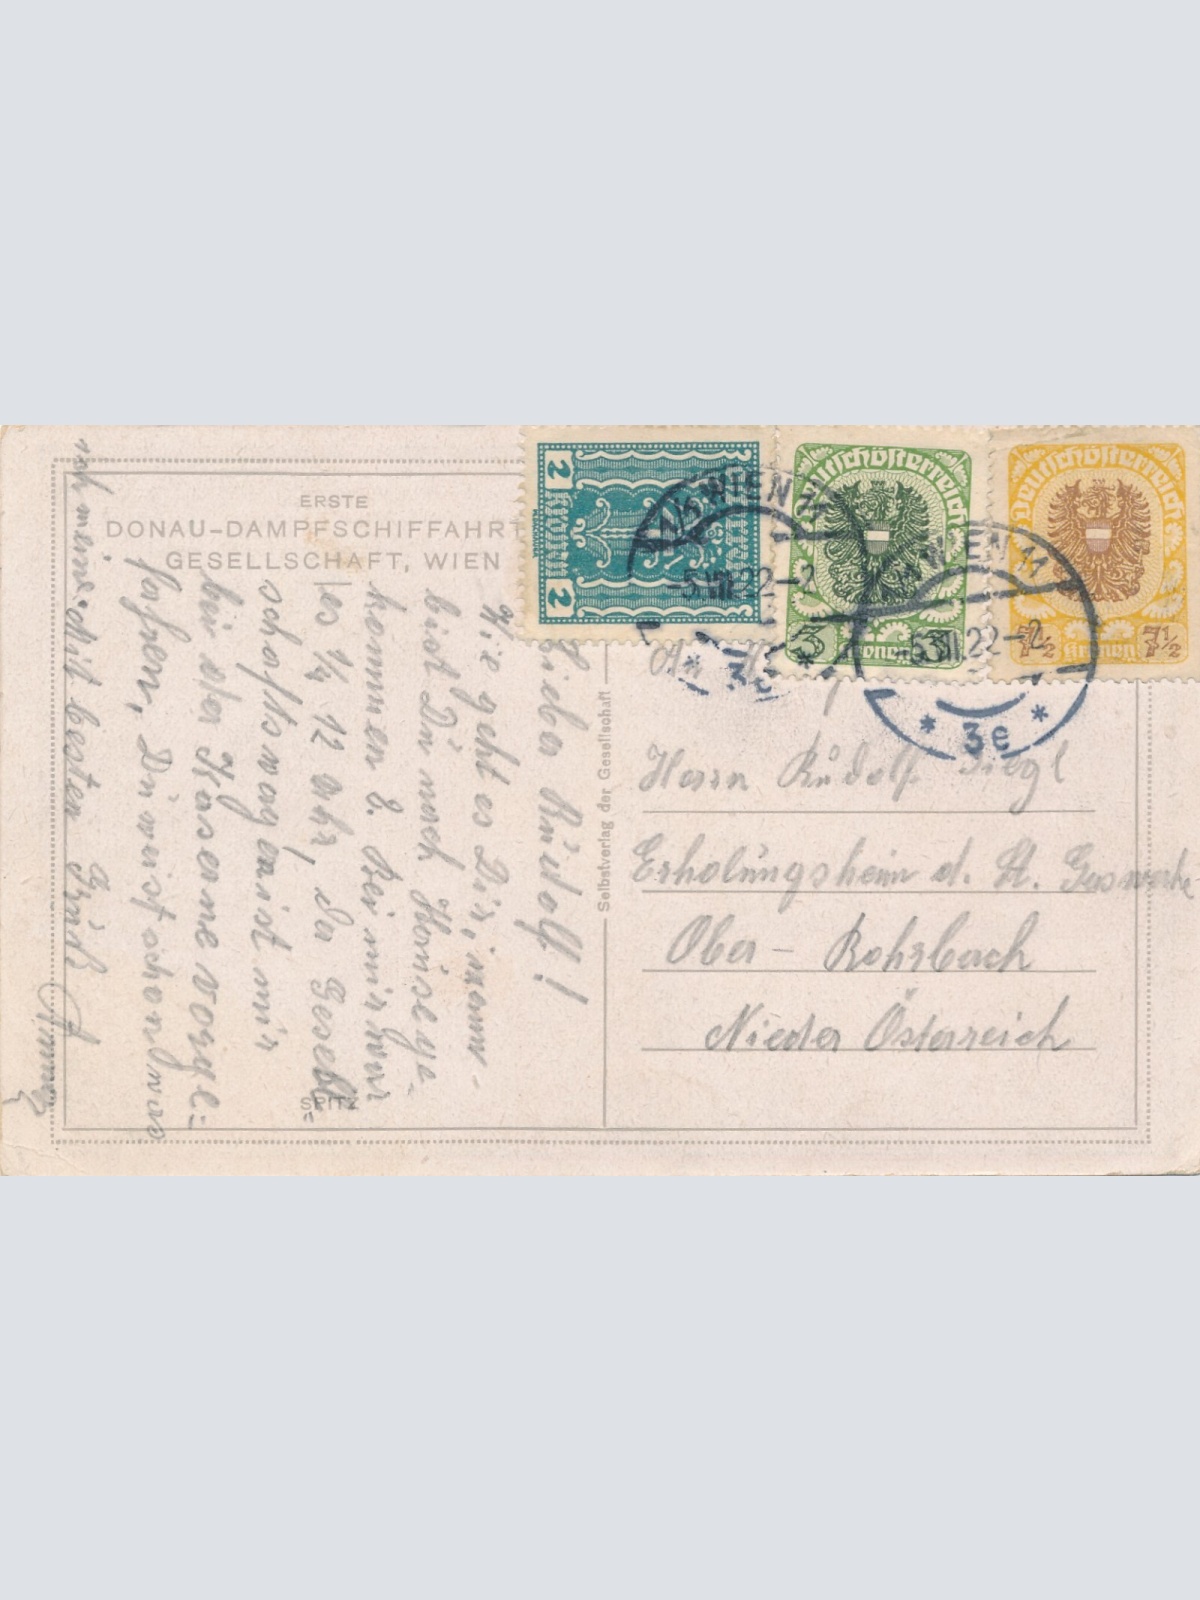 ERSTE
DONAU-DAMPFSCHIFFAHRT
GESELLSCHAFT, WIEN
Lieber Rudolf!
Wie geht es Dir, wann
bist Du nach
kommen?. Bei mir war
es 1/4 12 Uhr, da Gesell=
schaftswag ist mir
bei der Kaserne vorge=
fahren, Du weist schon was
ich meine. Mit besten Gruß
SPITZ
Selbstverlag der Gesellschaft
2 KRONEN 2
Deutschösterreich
3 Kronen 3
Deutschösterreich
7½ Kronen 7½
WIEN
-5.VII.22-2
* 3e *
WIEN 11
-5.VII.22-2
* 3e *
An
Herrn Rudolf Siegl
Erholungsheim d. St. Gaswerke
Ober - Rohrbach
Nieder Österreich